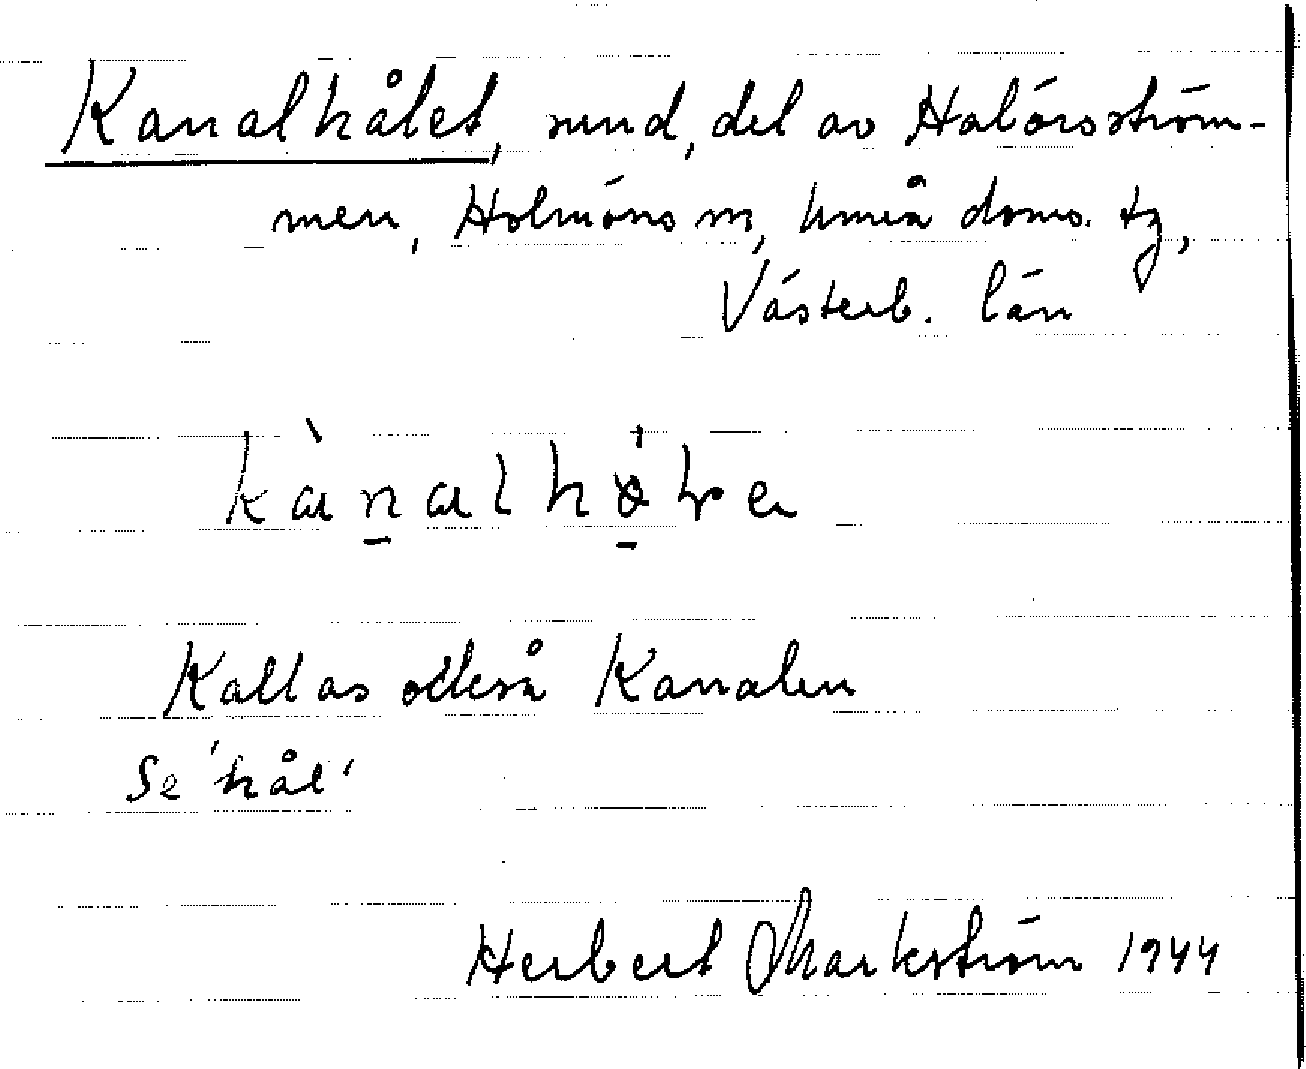 Kanalhålet, sund, del av Halörsström-
men, Holmöns sn, Umeå doms. tg,
Västerb. län
Kallas också Kanalen
Se 'hål'
Herbert Markström 1944